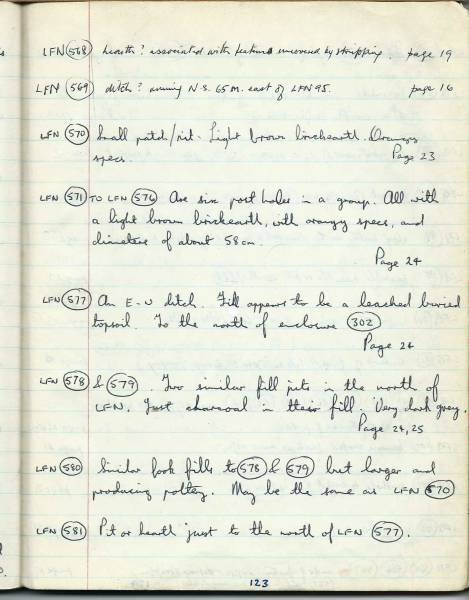 LFN 568 hearth? associated with features uncovered by stripping. page 19
LFN 569 ditch? running N.S. 65m. east of LFN 95. page 16
LFN 570 Small patch/pit. Light brown brickearth. Orangy
specs. Page 23
LFN 571 TO LFN 576 Are six post holes in a group. All with
a light brown brickearth, with orangy specs, and
diameters of about 58cm.
Page 24
LFN 577 An E-W ditch. Fill appears to be a leached buried
topsoil. To the north of enclosure 302
Page 24
LFN 578 & 579. Two similar fill pits in the north of
LFN. Just charcoal in their fill. Very dark grey.
Page 24, 25
LFN 580 Similar look fills to 578 & 579 but larger and
producing pottery. May be the same as LFN 570
LFN 581 Pit or hearth just to the north of LFN 577.
123